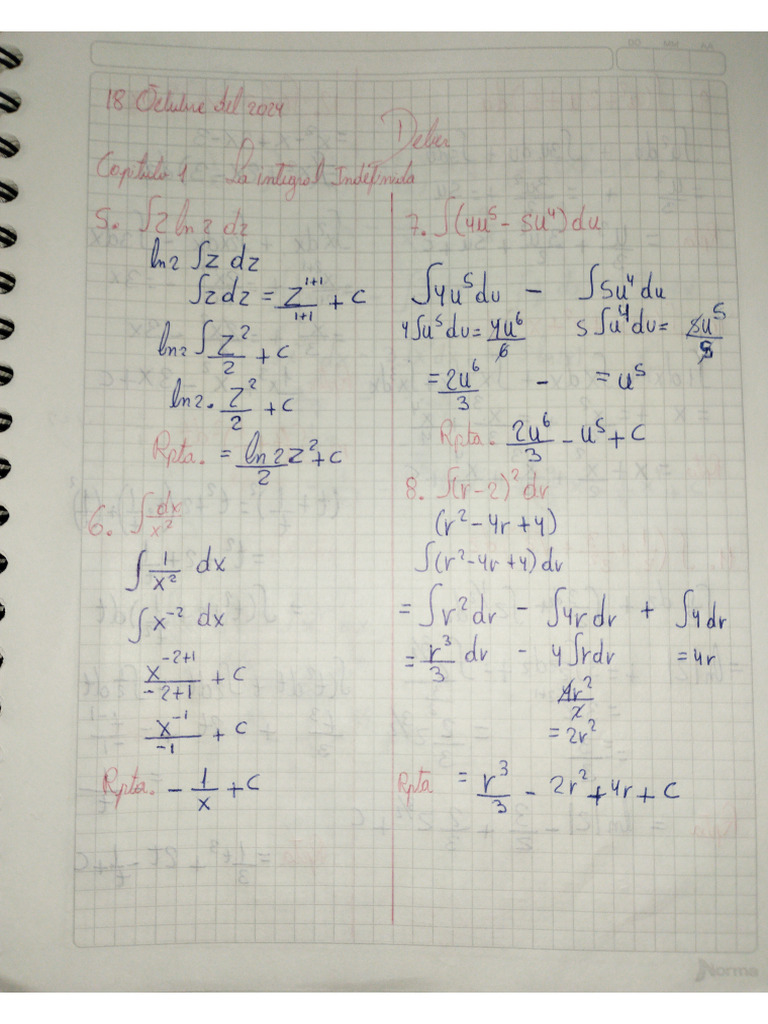 18 Octubre del 2024
Deber
Capitulo 1 La integral Indefinida
5. ∫z ln 2 dz
ln2 ∫z dz
∫z dz = z^(1+1)/(1+1) + C
ln2 ∫ z^2/2 + C
ln2 · z^2/2 + C
Rpta. = ln2z^2/2 + C
6. ∫dx/x^2
∫ 1/x^2 dx
∫ x^-2 dx
x^(-2+1)/(-2+1) + C
x^-1/-1 + C
Rpta. - 1/x + C
7. ∫(4u^5 - 5u^4) du
∫4u^5 du - ∫5u^4 du
4∫u^5 du = 4u^6/6 5∫u^4 du = 5u^5/5
= 2u^6/3 - = u^5
Rpta. 2u^6/3 - u^5 + C
8. ∫(r-2)^2 dr
(r^2 - 4r + 4)
∫(r^2 - 4r + 4) dr
= ∫r^2 dr - ∫4r dr + ∫4 dr
= r^3/3 dr - 4∫r dr = 4r
4r^2/2
= 2r^2
Rpta = r^3/3 - 2r^2 + 4r + C
Norma